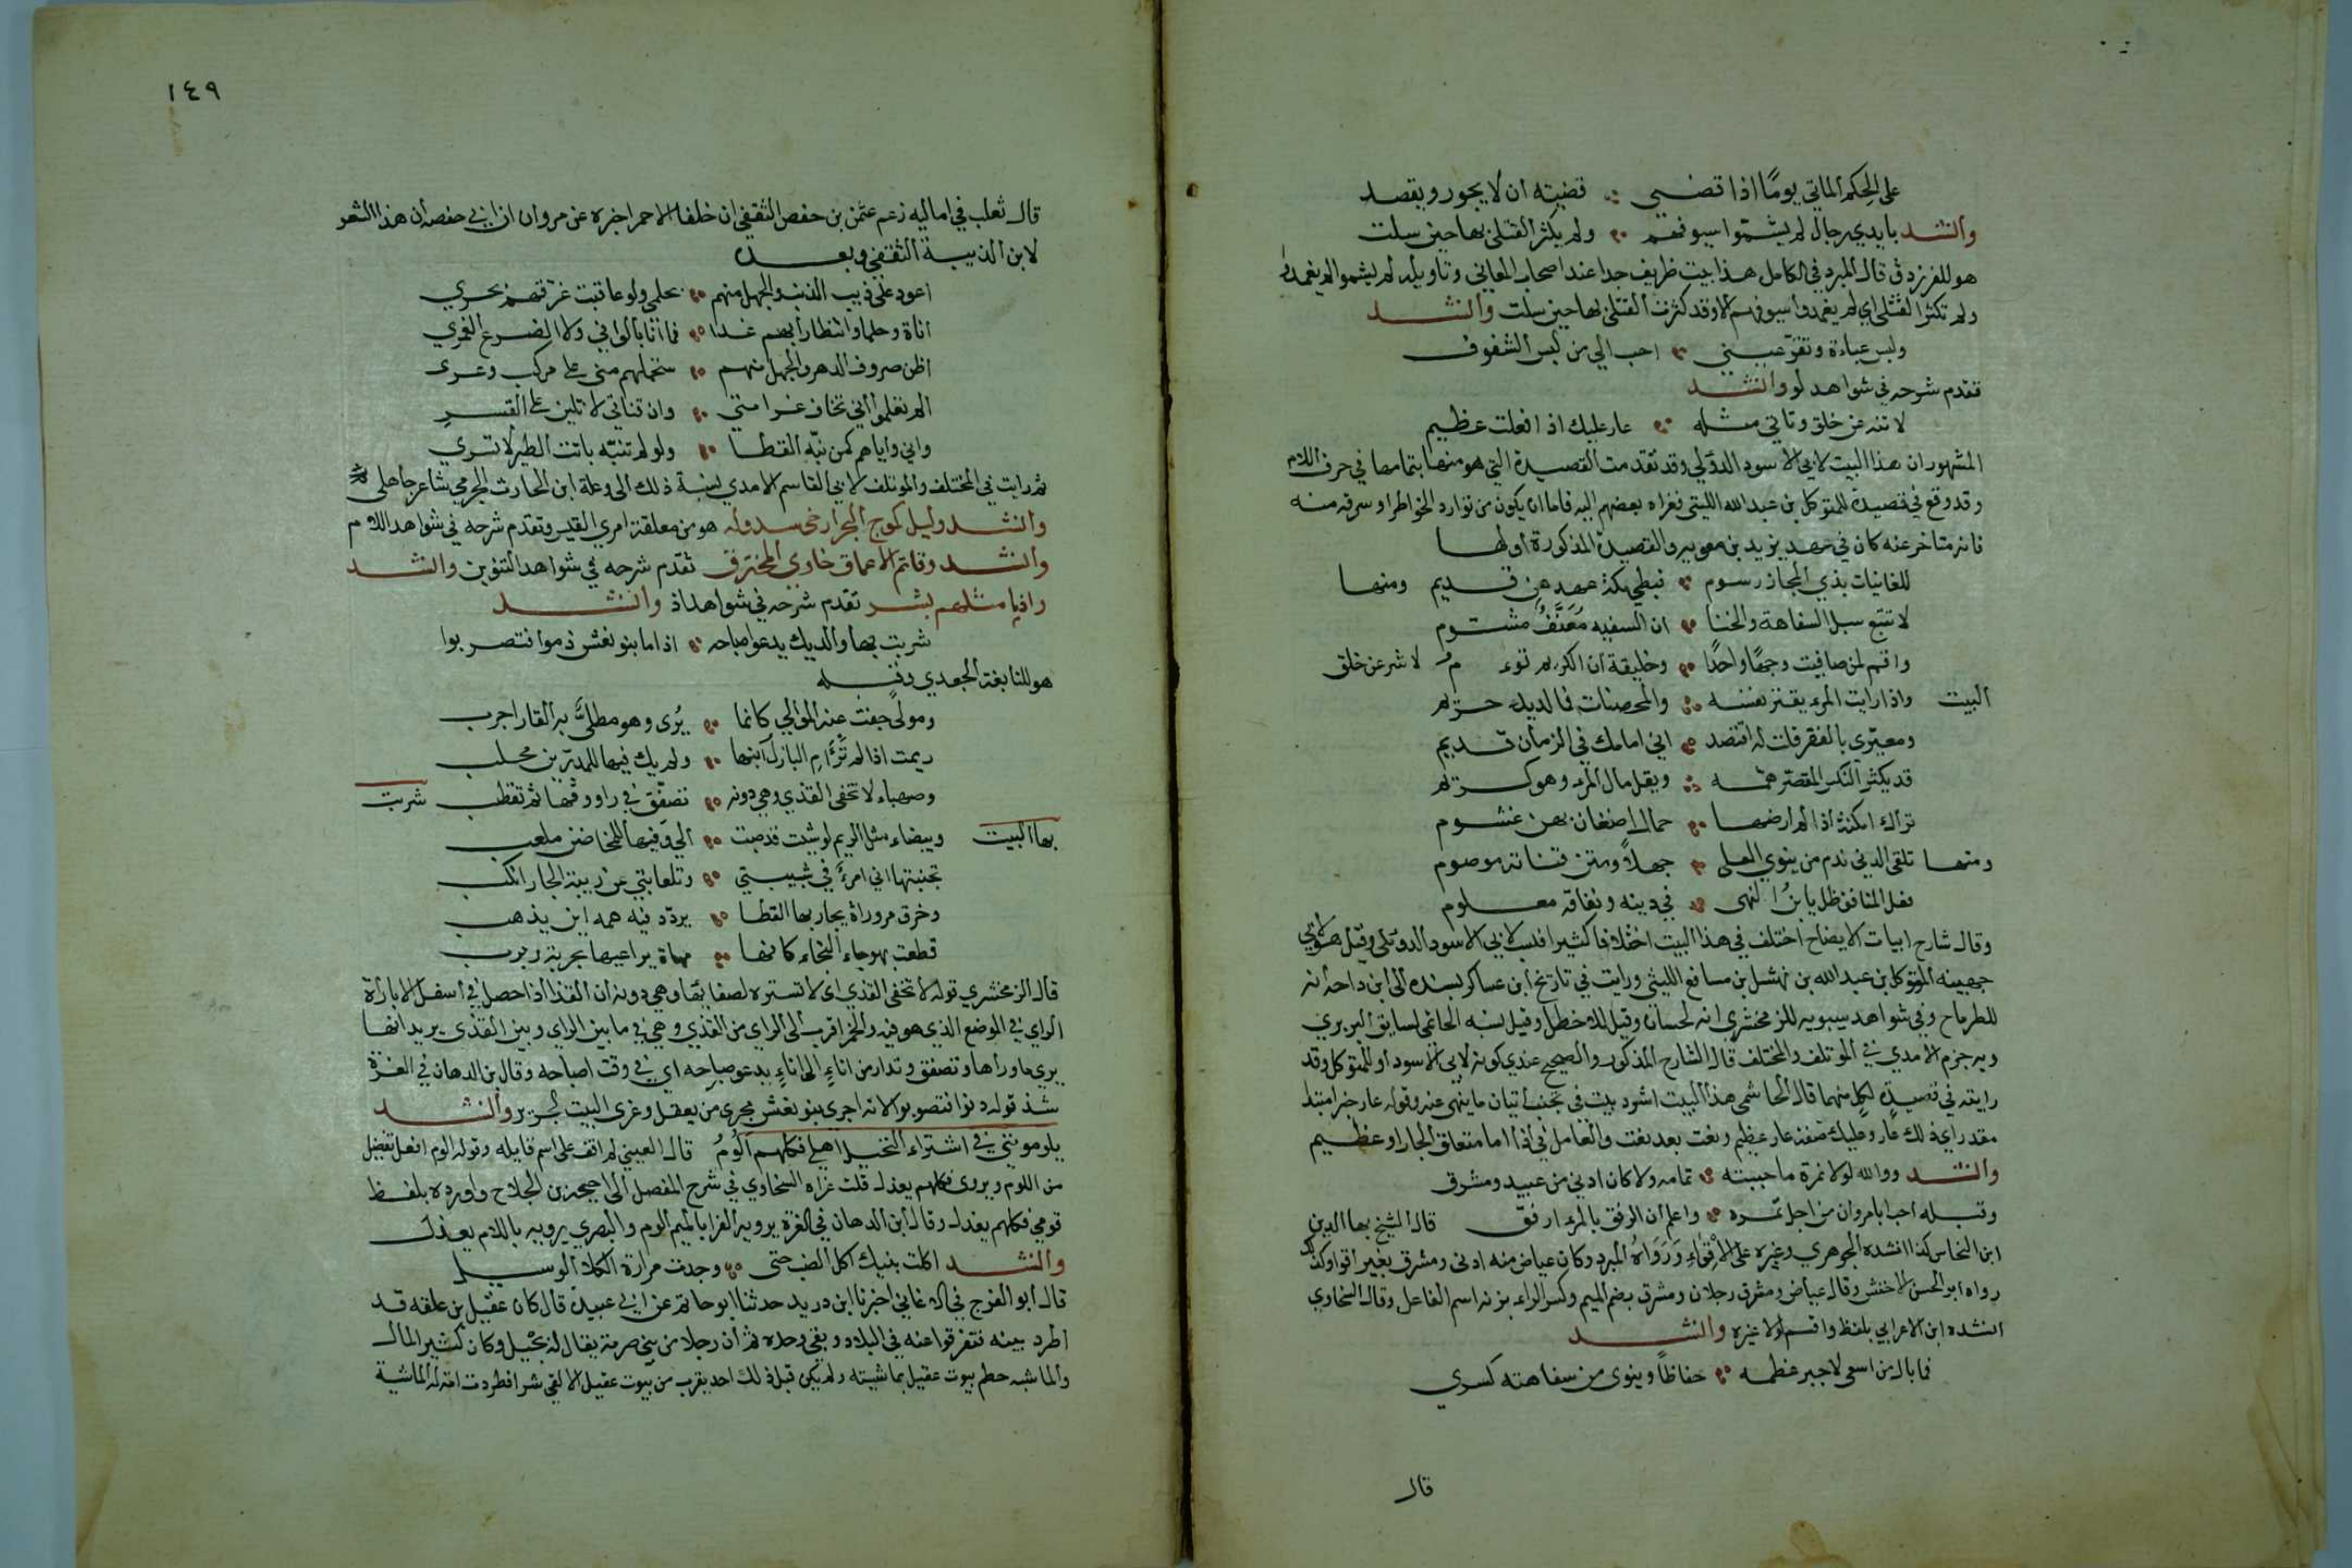 على الحكم الماتي يومًا اذا قضى ؞ قضيته ان لا يجور ويقصد
وأنشد بايدي رجال لم يشيموا سيوفهم ؞ ولم يكثر القتلى بها حين سلت
هو للفرزدق قال المبرد في الكامل هذا بيت ظريف جدا عند اصحاب المعاني وتاويله لم يشيموا لم يغمدوا
ولم تكثر القتلى اي لم يغمدوا سيوفهم الا وقد كثرت القتلى بها حين سلت وأنشد
ولبس عباءة وتقرّ عيني ؞ احب الي من لبس الشفوف
تقدم شرحه في شواهد لو وأنشد
لا تنه عن خلق وتاتي مثله ؞ عار عليك اذا فعلت عظيم
المشهور ان هذا البيت لابي الاسود الدؤلي وقد تقدمت القصيدة التي هو منها بتمامها في حرف اللام
وقد وقع في قصيدة للمتوكل بن عبد الله الليثي فعزاه بعضهم اليه فاما ان يكون من توارد الخواطر او سرقه منه
فانه متاخر عنه كان في عهد يزيد بن معويه والقصيدة المذكورة اولها
للغانيات بذي المجاز رسوم ؞ فبطن مكة عهدهن قديم ومنها
لا تتبع سبل السفاهة والخنا ؞ ان السفيه مُعَنَّفٌ مشتوم
واقم لمن صافيت وجهًا واحدًا ؞ وخليقة ان الكريم قوءم لا تنه عن خلق
البيت واذا رايت المرء يقفو نفسه ؞ والمحصنات فما لديه حريم
ومعيّرى بالفقر قلت له اقتصد ؞ اني امامك في الزمان قديم
قد يكثر النكس المقصّر همّه ؞ ويقل مال المرء وهو كريم
تراك امكنة اذا لم ارضها ؞ حمال اضغان بهن غشوم
ومنها تلقى الدني ندم من ينوي العلى ؞ جهلاً ومتن قناته موصوم
فعل المنافق ظل يابنُ النهى ؞ في دينه ونفاقه معلوم
وقال شارح ابيات الايضاح اختلف في هذا البيت اختلافا كثيرا فنسب لابي الاسود الدؤلي وقيل هو لابي
جهينه المتوكل بن عبد الله بن نهشل بن مسافع الليثي ورايت في تاريخ ابن عساكر بسنده الى ابن داحه انه
للطرماح وفي شواهد سيبويه للزمخشري انه لحسان وقيل للاخطل وقيل نسبه الحاتمي لسابق البربري
وبه جزم الامدي في الموتلف والمختلف قال الشارح المذكور والصحيح عندي كونه لابي الاسود او للمتوكل وقد
رايته في قصيدة لكل منهما قال الحاتمي هذا البيت اشرد بيت في تجنب اتيان ما ينهى عنه وقوله عار خبر مبتدا
مقدر اي ذلك عار وعليك صفة عار عظيم ونعت بعد نعت والعامل في اذا اما متعلق الجار او عظيم
وأنشد ووالله لولا تمره ما حببته ؞ تمامه ولا كان ادنى من عبيد ومشرق
وقبله احب ابا مروان من اجل تمره ؞ واعلم ان الرفق بالمرء ارفق قال الشيخ بها الدين
ابن النحاس كذا انشده الجوهري وغيره على الاِقْوَاءِ وَرَوَاهُ المبرد وكان عياض منه ادنى ومشرق بغير اقوا وكذلك
رواه ابو الحسن الاخفش وقال عياض ومشرق رجلان ومشرق بضم الميم وكسر الراء بزنه اسم الفاعل وقال السخاوي
انشده ابن الاعرابي بلفظ واقسم لولا غيره وأنشد
فما بال من اسعى لاجبر عظمه ؞ حفاظًا وينوى من سفاهته كسري
قال
١٤٩
قال ثعلب في اماليه زعم عثمن بن حفص الثقفي ان خلفا الاحمر اخبره عن مروان ابن ابي حفصه ان هذا الشعر
لابن الذيبة الثقفي وبعده
اعود على ذي الذنب والجهل منهم ؞ بحلمى ولو عاقبت غرّقهم بحري
اناة وحلما وانتظارا بهم غدا ؞ فما انا بالواني ولا الضرع الغمري
اظن صروف الدهر والجهل منهم ؞ ستحملهم منى على مركب وعرى
الم تعلموا أني تخاف عرامتي ؞ وان قناتي لا تلين على القسر
واني واياهم كمن نبّه القطا ؞ ولو لم تنبّه باتت الطير لا تسري
ثم رايت في المختلف والموتلف لابي القاسم الامدي نسبة ذلك الى وعلة ابن الحارث الجرمي شاعر جاهلى
وأنشد وليل كموج البحر ارخى سدوله هو من معلقة امرئ القيس وتقدم شرحه في شواهد اللام
وأنشد وقاتم الاعماق خاوي المخترق تقدم شرحه في شواهد التنوين وأنشد
واذ ما مثلهم بشر تقدم شرحه في شواهد اذ وأنشد
شربت بها والديك يدعو صباحه ؞ اذا ما بنو نعش دنوا فتصوبوا
هو للنابغة الجعدي وقبله
ومولًى جفت عنه الموالي كانما ؞ يُرى وهو مطلىٌّ به القار اجرب
ريمت اذا لم تَرْأمِ البازل ابنها ؞ ولم يك فيها للمدرّين محلب
وصهباء لا تخفى القذى وهي دونه ؞ تصفّق في راووقها ثم تقطب شربت
بها البيت وبيضاء مثل الريم لو شيت قد صبت ؞ الي وفيها للمخاضن ملعب
تجنبتها اني امرءٌ في شبيبتي ؞ وتلعابتي عن ريبة الجار انكب
وخرق مروراة يحار بها القطا ؞ يردّد فيه همه اين يذهب
قطعت بهوجاء النجاء كانها ؞ مهاة يراعيها بحربة ربرب
قال الزمخشري قوله لا تخفى القذى اى لا تستره لصفائها وهي دونه ان القذا اذا حصل في اسفل الانا رآه
الراي في الموضع الذي هو فيه والخمر اقرب الى الراي من القذى وهي في ما بين الراي وبين القذى يريد انها
يرى ما وراها وتصفق وتدار من اناءٍ الى اناءٍ يدعو صباحه اي في وقت اصباحه وقال بن الدهان في الغرة
شذ قوله دنوا فتصوبوا لانه اجرى بنو نعش مجرى من يعقل وعزى البيت لجرير وأنشد
يلومونني في اشتراء النخيل اهلي فكلهم اَلْوَمُ قال العيني لم اقف على اسم قايله وقوله الوم افعل تفضيل
من اللوم ويروى فكلهم يعذل قلت عزاه السخاوي في شرح المفصل الى احيحة بن الجلاح واورده بلفظ
قومي فكلهم يعذل وقال ابن الدهان في الغرة يرويه الفرا بالميم الوم والبصري يرويه باللام يعذل
وأنشد اكلت بنيك اكل الضب حتى ؞ وجدت مرارة الكلا الوبيل
قال ابو الفرج في الاغاني اخبرنا ابن دريد حدثنا ابو حاتم عن ابي عبيدة قال كان عقيل بن علفه قد
اطرد بنيه فتفرقوا عنه في البلاد وبقى وحده ثم ان رجلا من بني صرمة يقال له بجيل وكان كثير المال
والماشيه حطم بيوت عقيل بماشيته ولم يكن قبل ذلك احد يقرب من بيوت عقيل الا لقى شرا فطردت امة له الماشية